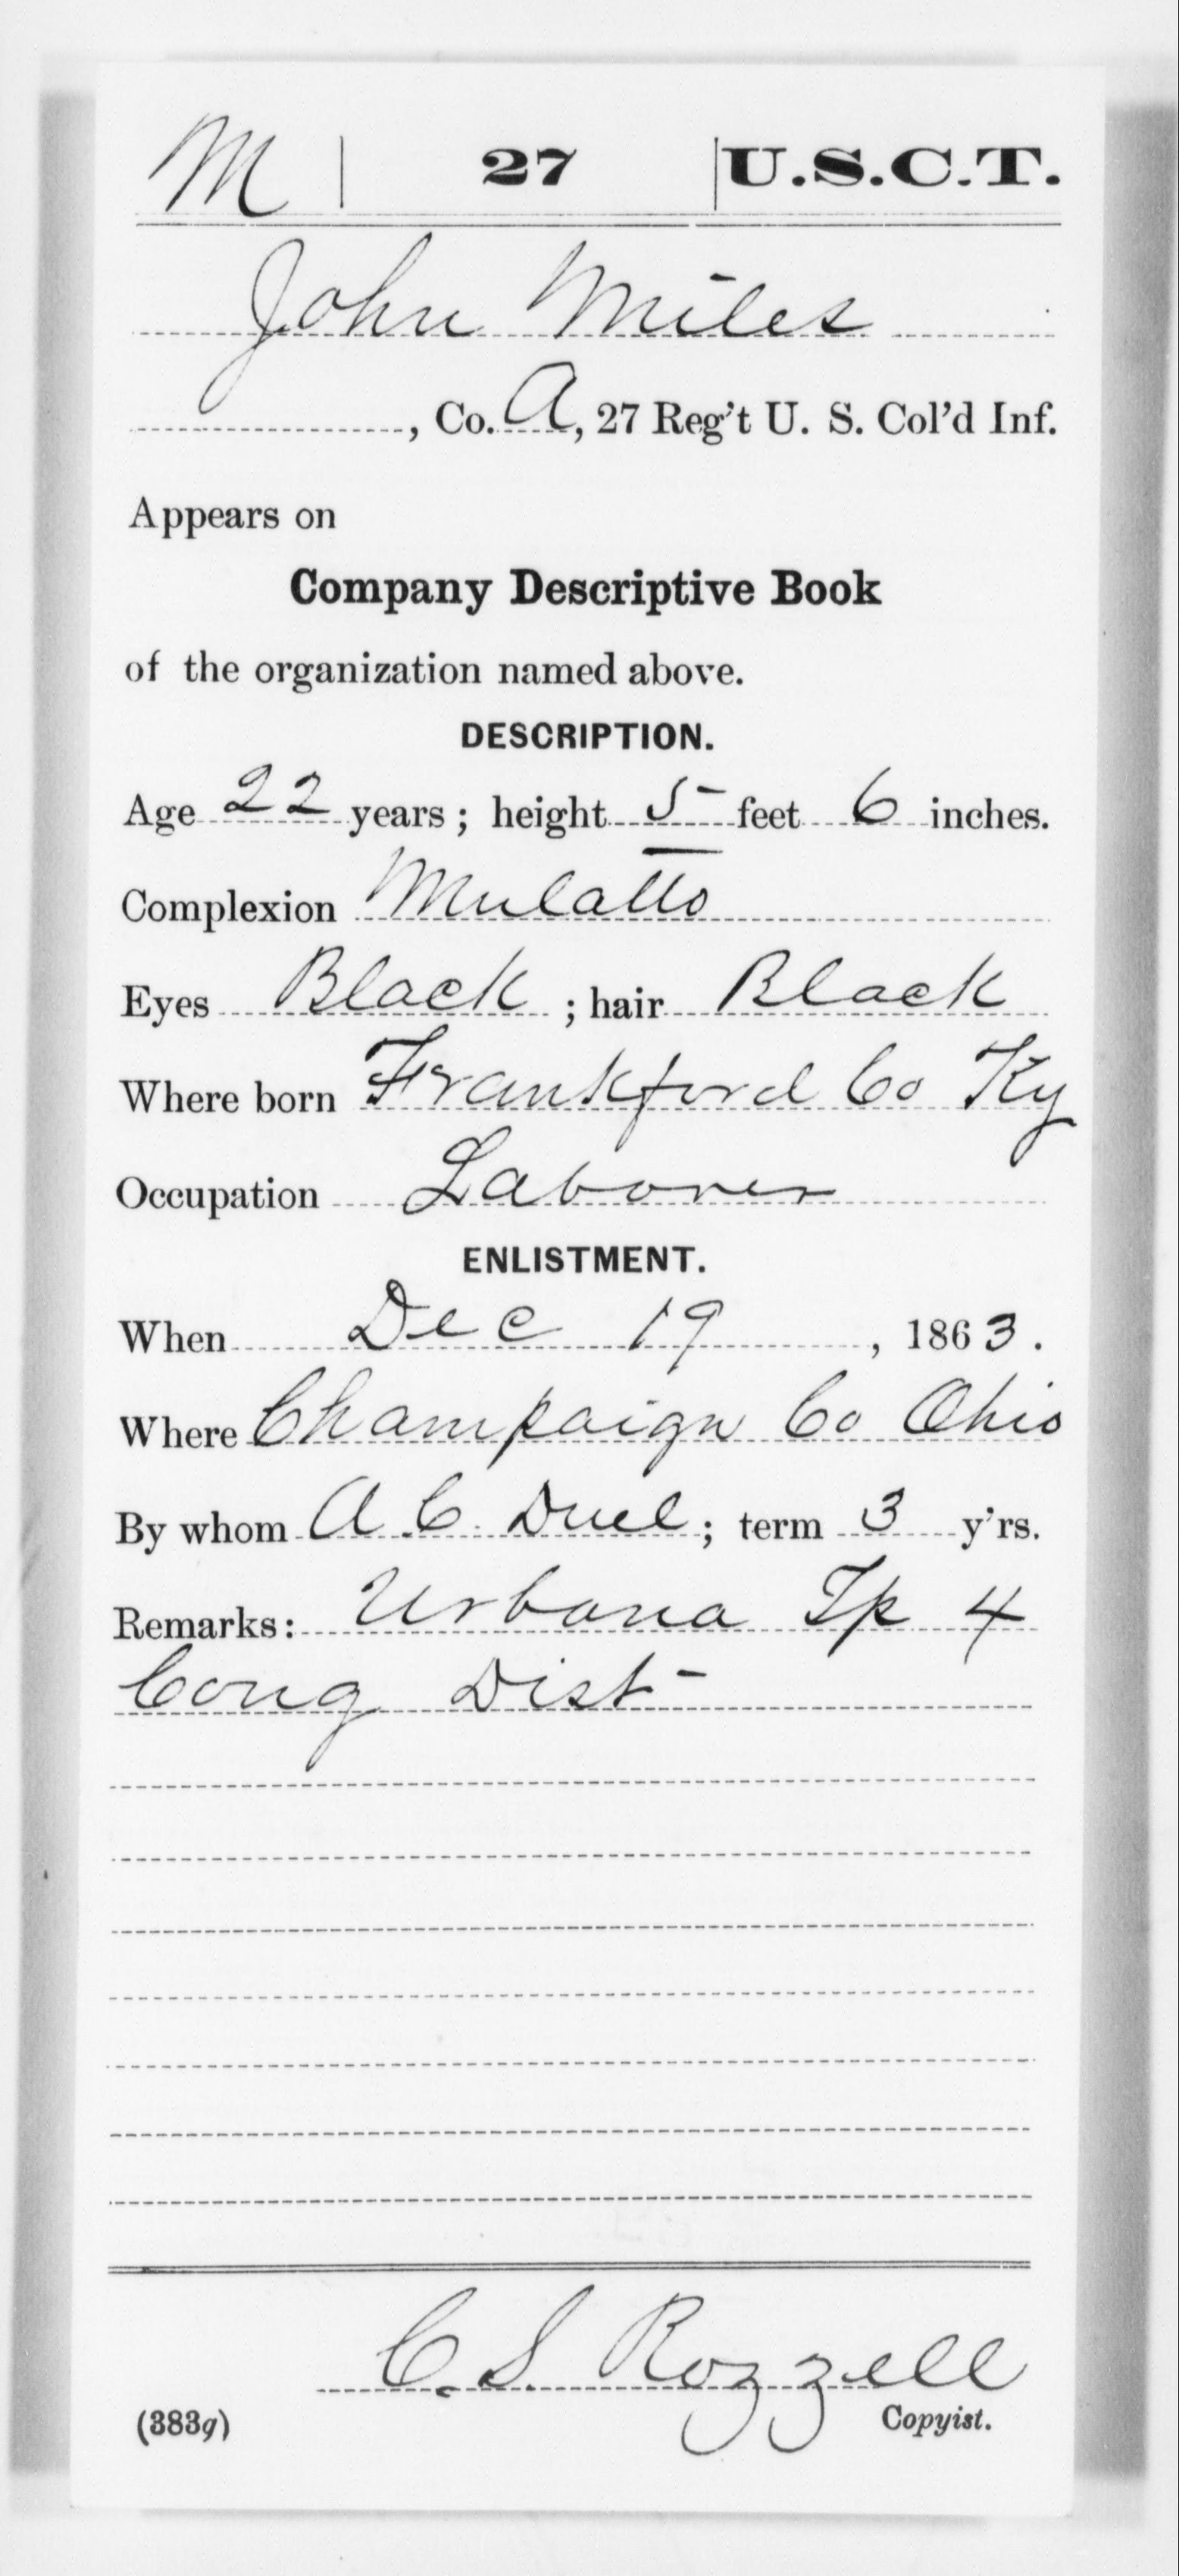 M | 27 | U.S.C.T.
John Miles
, Co. A, 27 Reg't U. S. Col'd Inf.
Appears on
Company Descriptive Book
of the organization named above.
DESCRIPTION.
Age 22 years; height 5 feet 6 inches.
Complexion Mulatto
Eyes Black ; hair Black
Where born Frankford Co Ky
Occupation Laborer
ENLISTMENT.
When Dec 19, 1863.
Where Champaign Co Ohio
By whom A. C. Duel; term 3 y'rs.
Remarks: Urbana Tp 4
Cong Dist
C. S. Rozzell
(383g) Copyist.